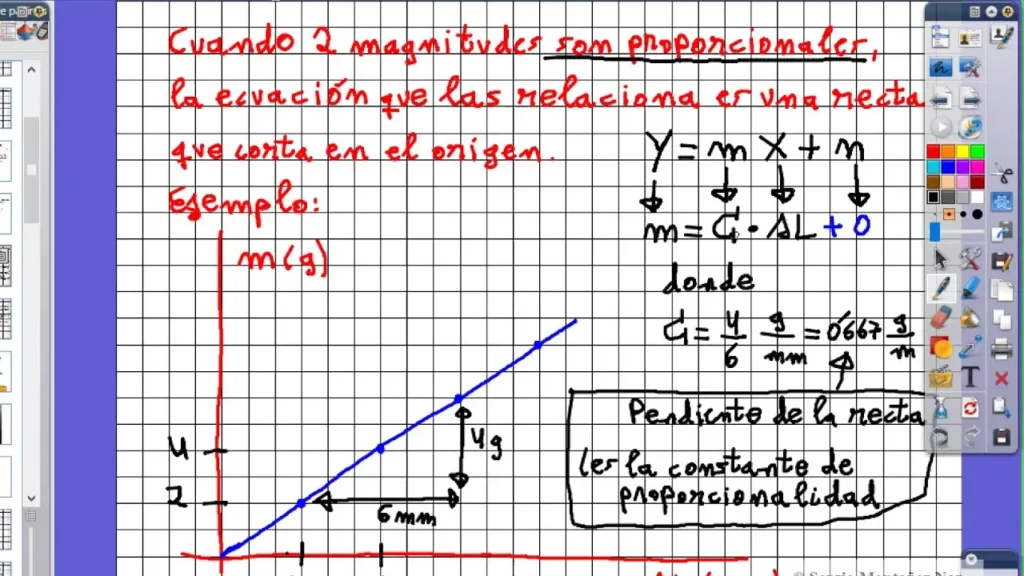 Cuando 2 magnitudes son proporcionales,
la ecuación que las relaciona es una recta
que corta en el origen.
Ejemplo:
Y = m X + n
m = G · ΔL + 0
donde
G = 4/6 g/mm = 0'667 g/m
Pendiente de la recta
(es la constante de
proporcionalidad
m(g)
4
2
4g
6mm